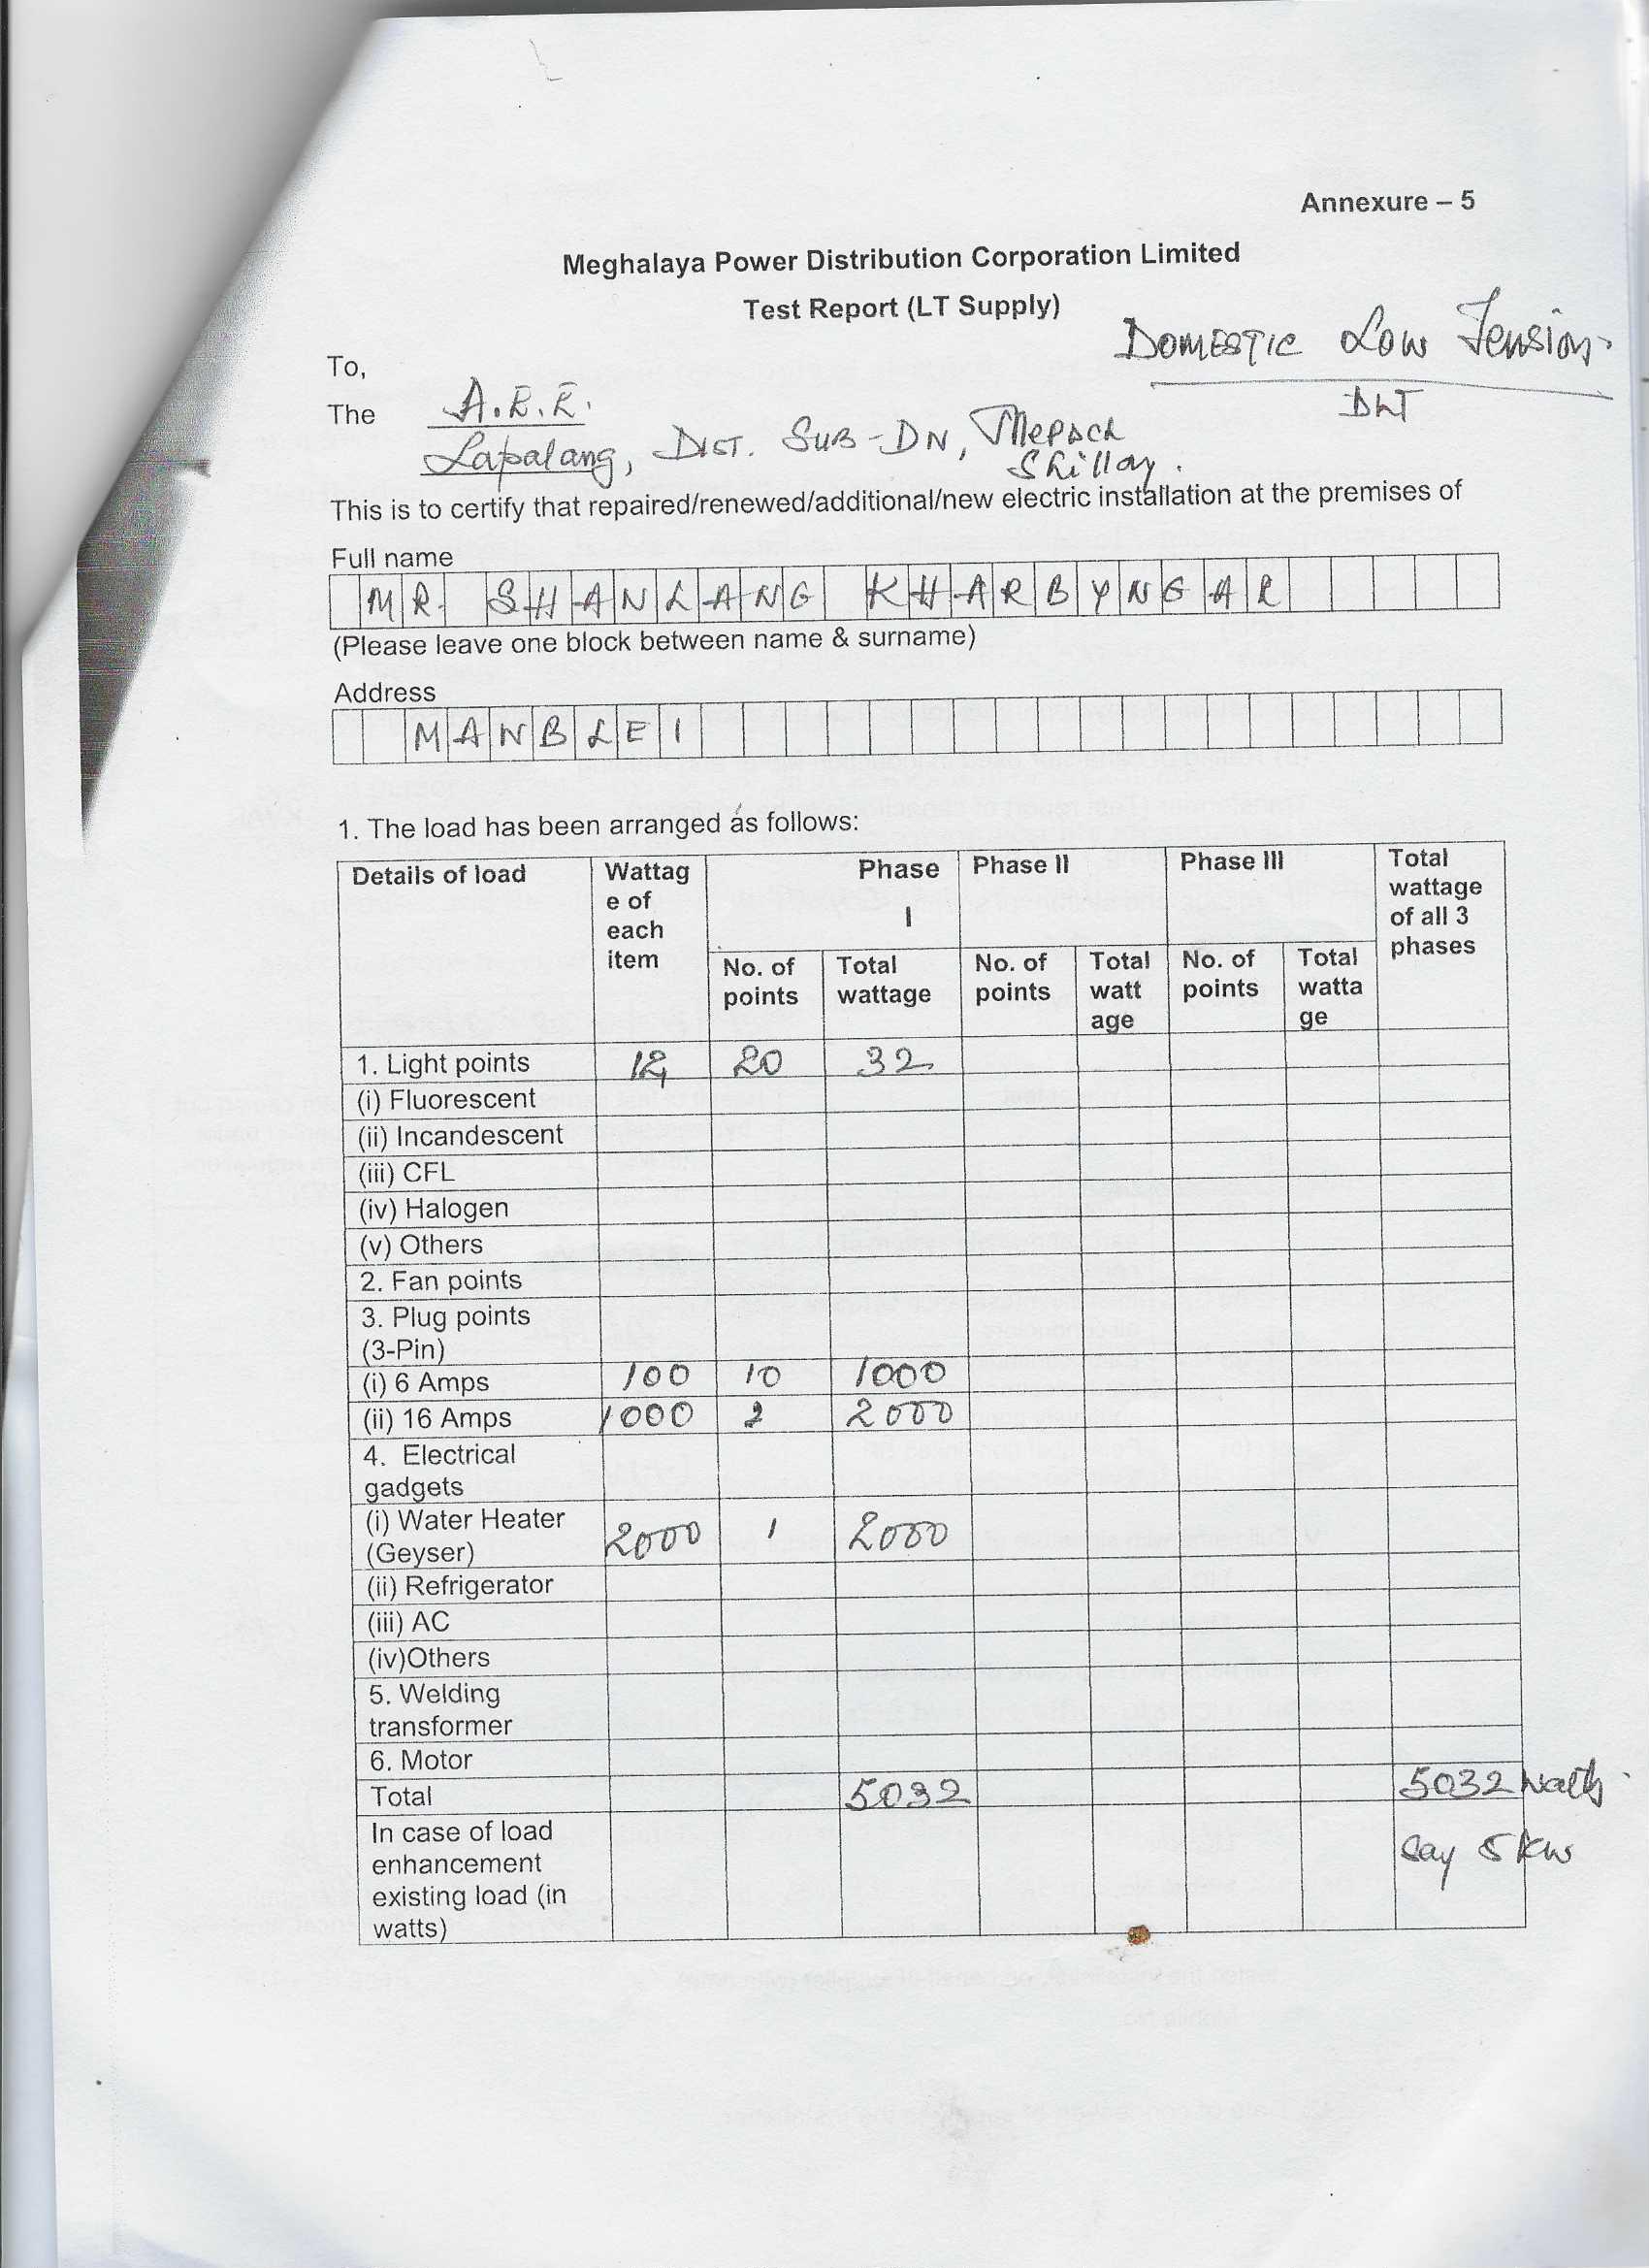 Annexure – 5
Meghalaya Power Distribution Corporation Limited
Test Report (LT Supply)
Domestic Low Tension
DLT
To,
The A.E.E.
Lapalang, Dist. Sub-Dn, Mepdcl
Shillong.
This is to certify that repaired/renewed/additional/new electric installation at the premises of
Full name
MR. SHANLANG KHARBYNGAR
(Please leave one block between name & surname)
Address
MANBLEI
1. The load has been arranged as follows:
Details of load Wattag e of each item Phase I Phase II Phase III Total wattage of all 3 phases
No. of points Total wattage No. of points Total watt age No. of points Total watta ge
1. Light points 12 20 32
(i) Fluorescent
(ii) Incandescent
(iii) CFL
(iv) Halogen
(v) Others
2. Fan points
3. Plug points
(3-Pin)
(i) 6 Amps 100 10 1000
(ii) 16 Amps 1000 2 2000
4. Electrical
gadgets
(i) Water Heater
(Geyser) 2000 1 2000
(ii) Refrigerator
(iii) AC
(iv)Others
5. Welding
transformer
6. Motor
Total 5032 5032 watts
In case of load
enhancement say 5 kw
existing load (in
watts)